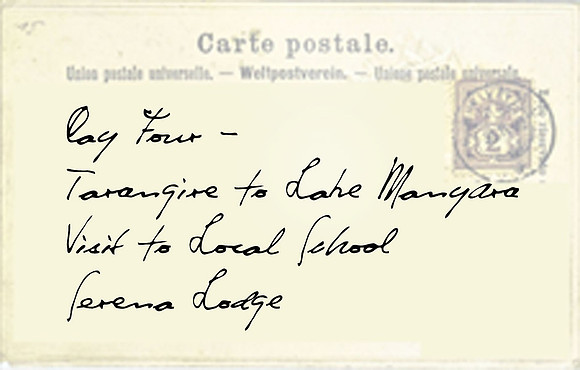 Carte postale.
Union postale universelle. — Weltpostverein. — Unione postale universale.
2
Day Four –
Tarangire to Lake Manyara
Visit to Local School
Serena Lodge